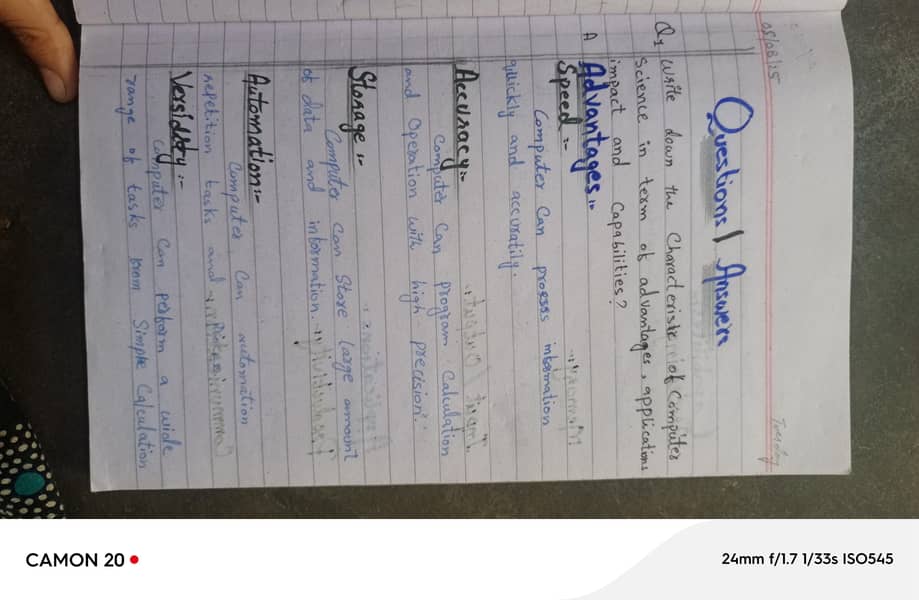 05/08/25
Tuesday
Questions / Answers
Q1 Write down the Characteristic of Computer
Science in term of advantages, applications
impact and Capabilities?
A Advantages:-
Speed:-
Computer Can process information
quickly and accuratily.
Accuracy:-
Computer Can program Calculation
and Operation with high precision.
Storage:-
Computer Can Store large amount
of data and information.
Automation:-
Computer Can automation
repetition tasks and
Versidity:-
Computer Can perform a wide
range of tasks from Simple Calculation
CAMON 20
24mm f/1.7 1/33s ISO545